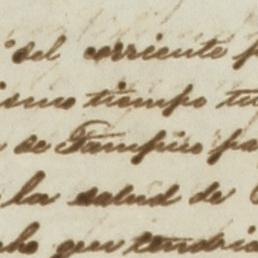 del corriente p
ismo tiempo tu
de Tampico pa
la salud de
ho que tendria